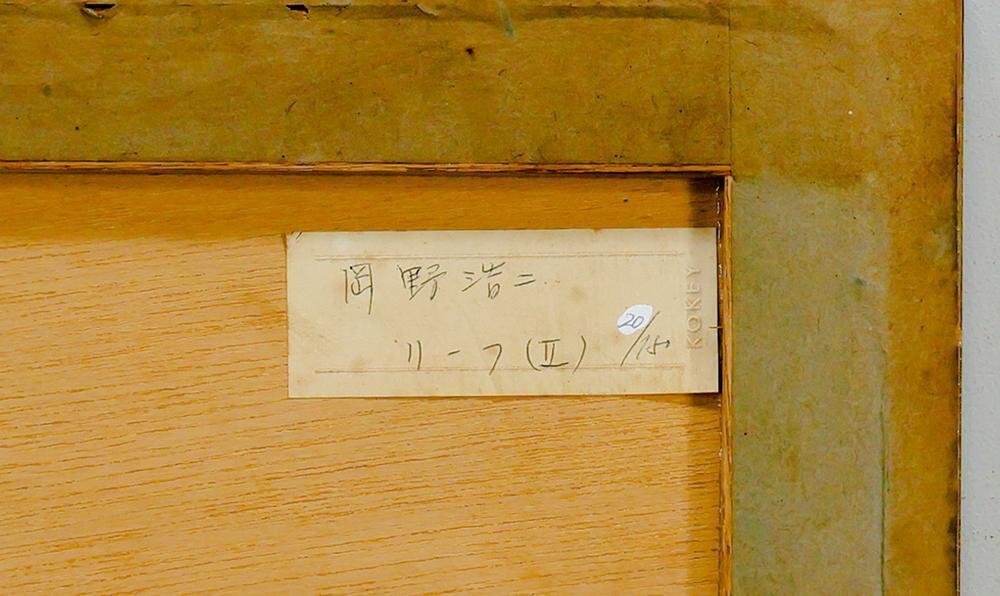 岡野浩二
リーフ(Ⅱ) 20/150
KOKEY